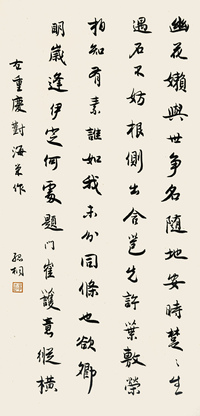 幽花嬾與世爭名隨地安時楚〻生
遇石不妨根側出合邕先許葉敷榮
相知有素誰如我未分同條也欲卿
明歲逢伊定何處題門崔護意縱橫
在重慶對海棠作